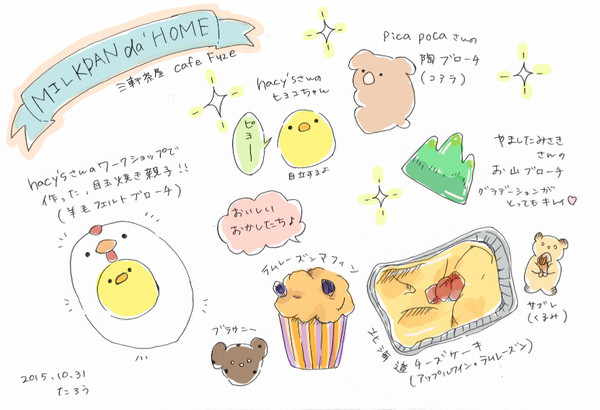 MILKPAN da' HOME!
三軒茶屋 cafe Fuze
hacy'sさんの
ヒヨコちゃん
ピヨー
自立するよ
pica pocaさんの
陶ブローチ
(コアラ)
hacy'sさんのワークショップで
作った、目玉焼き親子!!
(羊毛フェルトブローチ)
やましたみさき
さんの
お山ブローチ
グラデーションが
とってもキレイ♡
おいしい
おかしたち♪
ラムレーズンマフィン
ブラウニー
サブレ
(くるみ)
北海道チーズケーキ
(アップルワイン・ラムレーズン)
2015.10.31
たろう